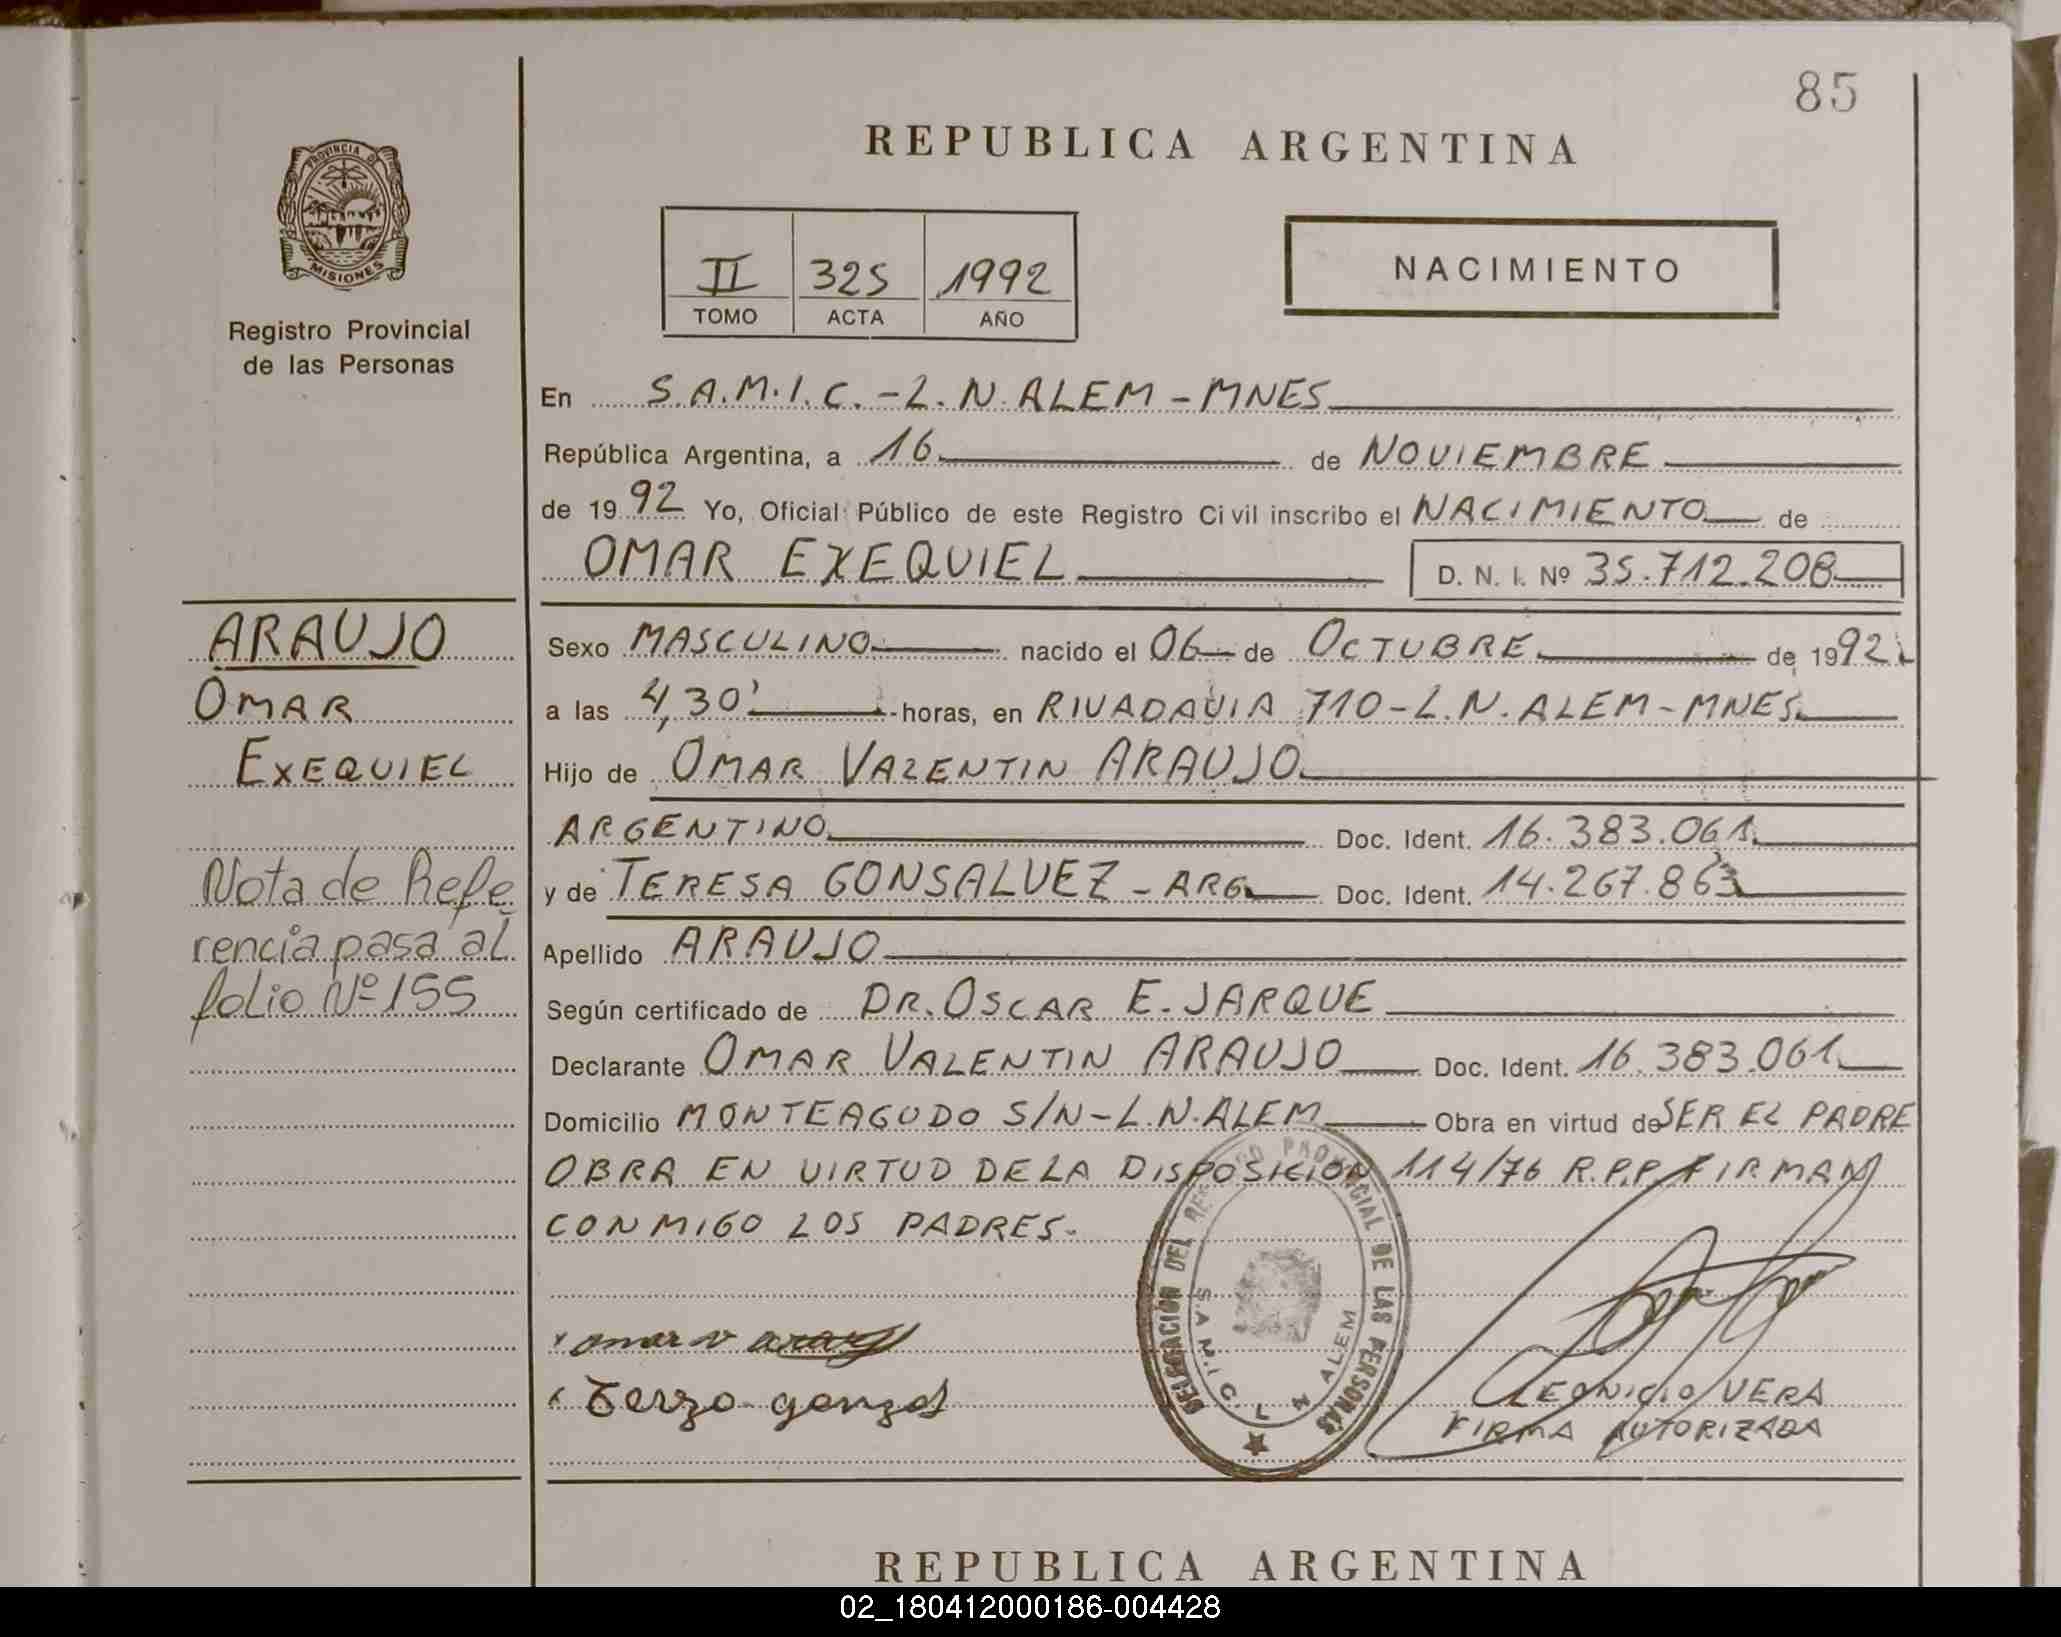 85
REPUBLICA ARGENTINA
PROVINCIA DE
MISIONES
Registro Provincial
de las Personas
II 325 1992
TOMO ACTA AÑO
NACIMIENTO
En S.A.M.I.C. - L. N. ALEM - MNES
República Argentina, a 16 de NOVIEMBRE
de 1992 Yo, Oficial Público de este Registro Civil inscribo el NACIMIENTO de
OMAR EXEQUIEL D. N. I. Nº 35.712.208
ARAUJO
OMAR
EXEQUIEL
Nota de Refe
rencia pasa al
folio Nº 155
Sexo MASCULINO nacido el 06 de OCTUBRE de 1992
a las 4,30' horas, en RIVADAVIA 710 - L. N. ALEM - MNES
Hijo de OMAR VALENTIN ARAUJO
ARGENTINO Doc. Ident. 16.383.061
y de TERESA GONSALVEZ - ARG Doc. Ident. 14.267.863
Apellido ARAUJO
Según certificado de DR. OSCAR E. JARQUE
Declarante OMAR VALENTIN ARAUJO Doc. Ident. 16.383.061
Domicilio MONTEAGUDO S/N - L. N. ALEM Obra en virtud de SER EL PADRE
OBRA EN VIRTUD DE LA DISPOSICION 114/76 R.P.P. FIRMAN
CONMIGO LOS PADRES.
DELEGACIÓN DEL REGISTRO PROVINCIAL DE LAS PERSONAS
S.A.M.I.C. L. N. ALEM
omar v
LEONICIO VERA
FIRMA AUTORIZADA
REPUBLICA ARGENTINA
02_180412000186-004428